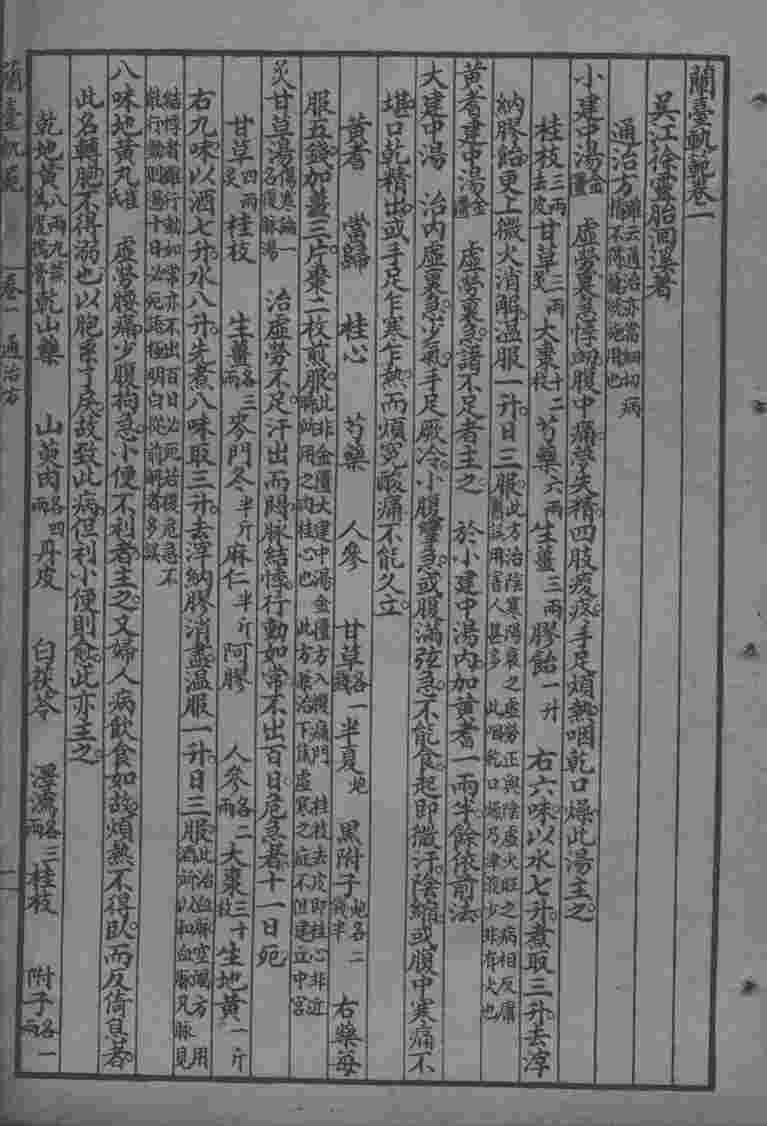 蘭臺軌範卷一
吳江徐靈胎洄溪著
通治方雖云通治亦當細切病情不得籠統施用也
小建中湯金匱 虛勞裏急悸衄腹中痛夢失精四肢痠疼手足煩熱咽乾口燥此湯主之
桂枝三兩去皮甘草三兩炙大棗十二枚芍藥六兩生薑三兩膠飴一升 右六味以水七升煮取三升去滓
納膠飴更上微火消解溫服一升日三服此方治陰寒陽衰之虛勞正與陰虛火旺之病相反庸醫誤用害人甚多 此咽乾口燥乃津液少非有火也
黃耆建中湯金匱 虛勞裏急諸不足者主之 於小建中湯內加黃耆一兩半餘依前法
大建中湯 治內虛裏急少氣手足厥冷小腹攣急或腹滿弦急不能食起即微汗陰縮或腹中寒痛不
堪口乾精出或手足乍寒乍熱而煩寃酸痛不能久立
黃耆 當歸 桂心 芍藥 人參 甘草各一錢半夏炮 黑附子炮各二錢半 右藥每
服五錢加薑三片棗二枚煎服此非金匱大建中湯金匱方入腹痛門 桂枝去皮即桂心非近時所用之肉桂心也 此方兼治下焦虛寒之症不但建立中宮
炙甘草湯傷寒論一名復脈湯 治虛勞不足汗出而悶脈結悸行動如常不出百日危急者十一日死
甘草四兩炙桂枝 生薑各三兩麥門冬半斤麻仁半斤阿膠 人參各二兩大棗三十枚生地黃一斤
右九味以酒七升水八升先煮八味取三升去滓納膠消盡溫服一升日三服此治血脈空竭方 用酒所以和血脈凡脈見
結悸者雖行動如常亦不出百日必死若復危急不能行動則過十日必死語極明白從前解者多誤
八味地黃丸崔氏 虛勞腰痛少腹拘急小便不利者主之又婦人病飲食如故煩熱不得臥而反倚息者
此名轉胞不得溺也以胞系了戾故致此病但利小便則愈此亦主之
乾地黃八兩乾山藥 山萸肉各四兩丹皮 白茯苓 澤瀉各三兩桂枝 附子各一兩
蘭臺軌範 卷一 通治方 一